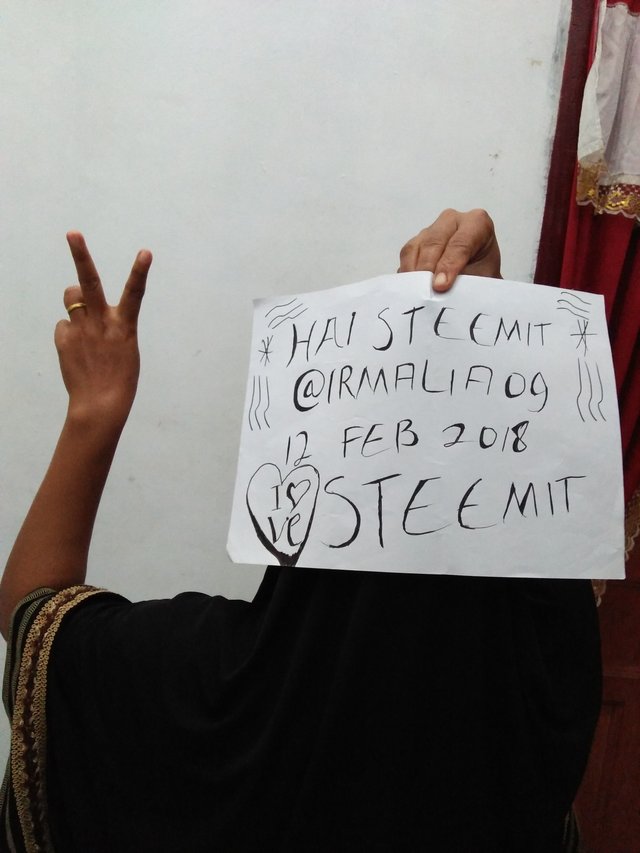 HAI STEEMIT
@IRMALIA09
12 FEB 2018
I LOVE STEEMIT